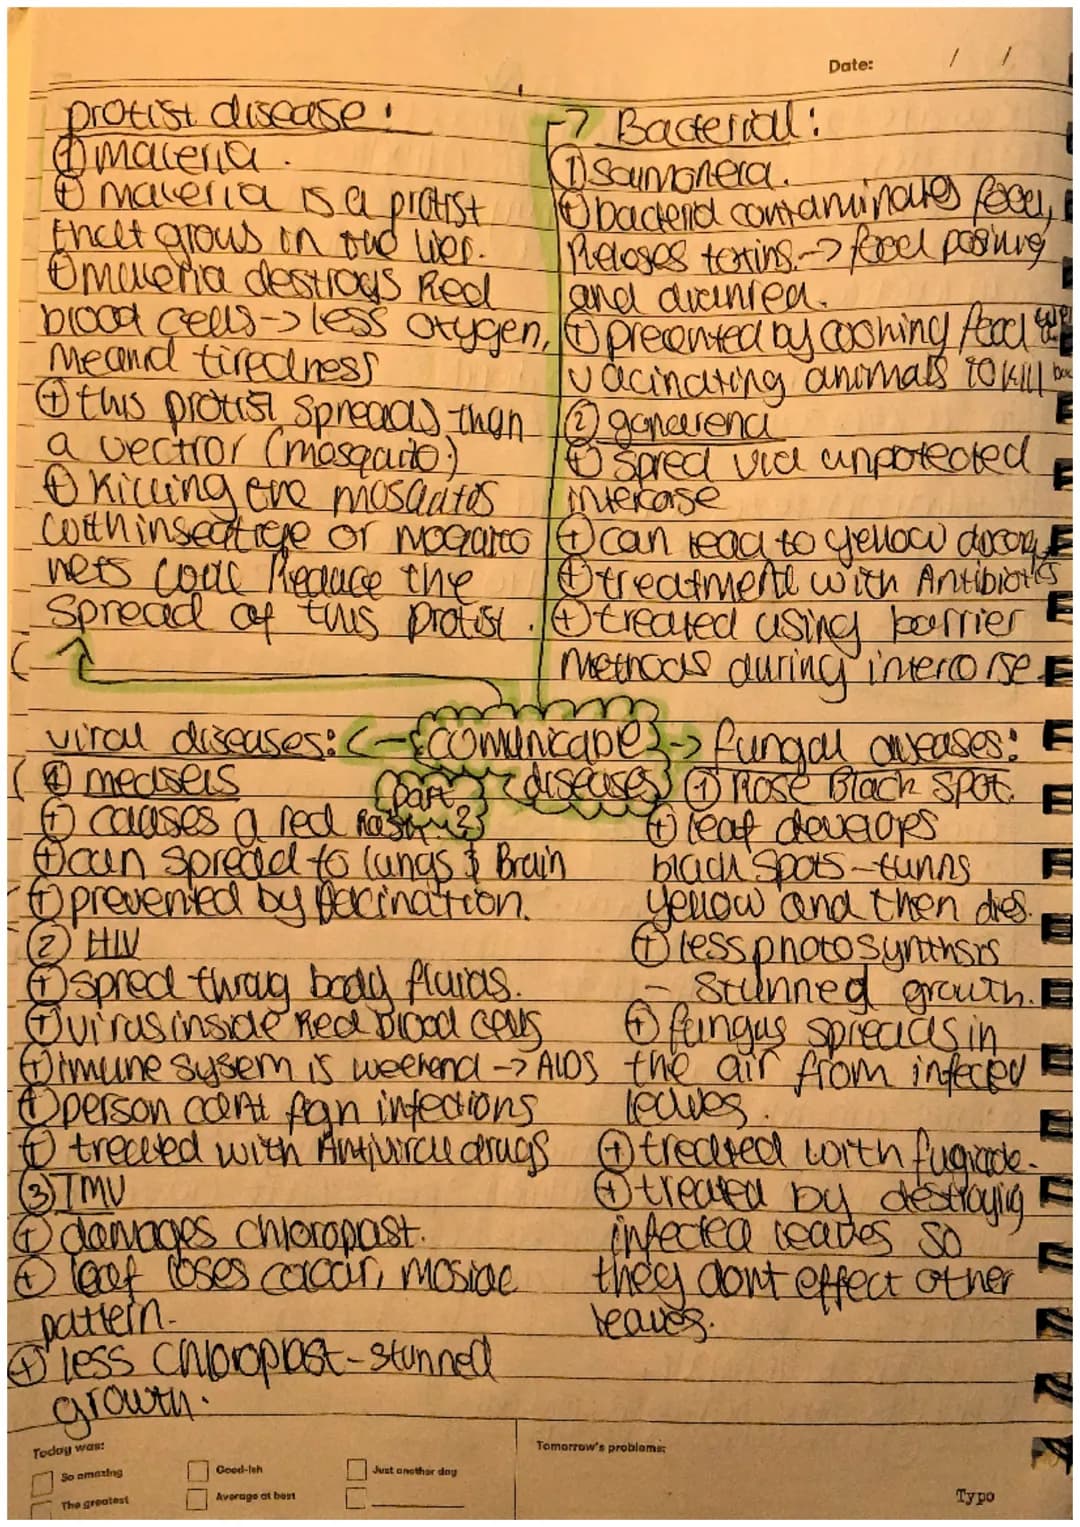 Date: / /
protist disease:
① maleria.
+ maleria is a protist
that grous in the liver.
+ maleria destroys Red
blood cells -> less oxygen,
tiredness
+ this protist spreads than
a vectror (mosqauito)
+ Killing the mosquitos
or
nets could Reduce the
spread of this protist.
-> Bacterial:
① Saimonera.
+ bacteria contaminates food,
Releases toxins. -> food
and
+ prevented by cooking food
vacinating animals to kill
②
+ spred via unprotected
intercorse
+ can lead to yellow
+ treatment with Antibiotics
+ treated using barrier
Methods during intercorse.
comunicable
diseases
part 2
viral diseases:
① measels
+ causes a red Rash
+ can spread to lungs & Brain
+ prevented by
② HIV
+ spred body fluids.
+ virus inside Red blood cells
+ imune sysem is -> AIDS
+ person cant infections
+ treated with Antiviral drugs
③ TMV
+ damages chloropast.
+ leaf loses colour, mosiac
pattern.
+ less chloroplast - stunned
growth.
fungal diseases:
① Rose Black spot.
+ leaf develops
black spots - tunns
yellow and then dies.
+ less photosynthsis
- stunned growth.
+ fungus spreads in
the air from infected
leaves.
+ treated with
+ treated by destroying
infected leaves so
they dont effect other
leaves.
Today was:
So amazing
Good-ish
Just another day
The greatest
Average at best
Tomorrow's problems:
Typo